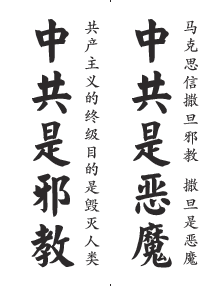 马克思信撒旦邪教 撒旦是恶魔
中共是恶魔
共产主义的终级目的是毁灭人类
中共是邪教